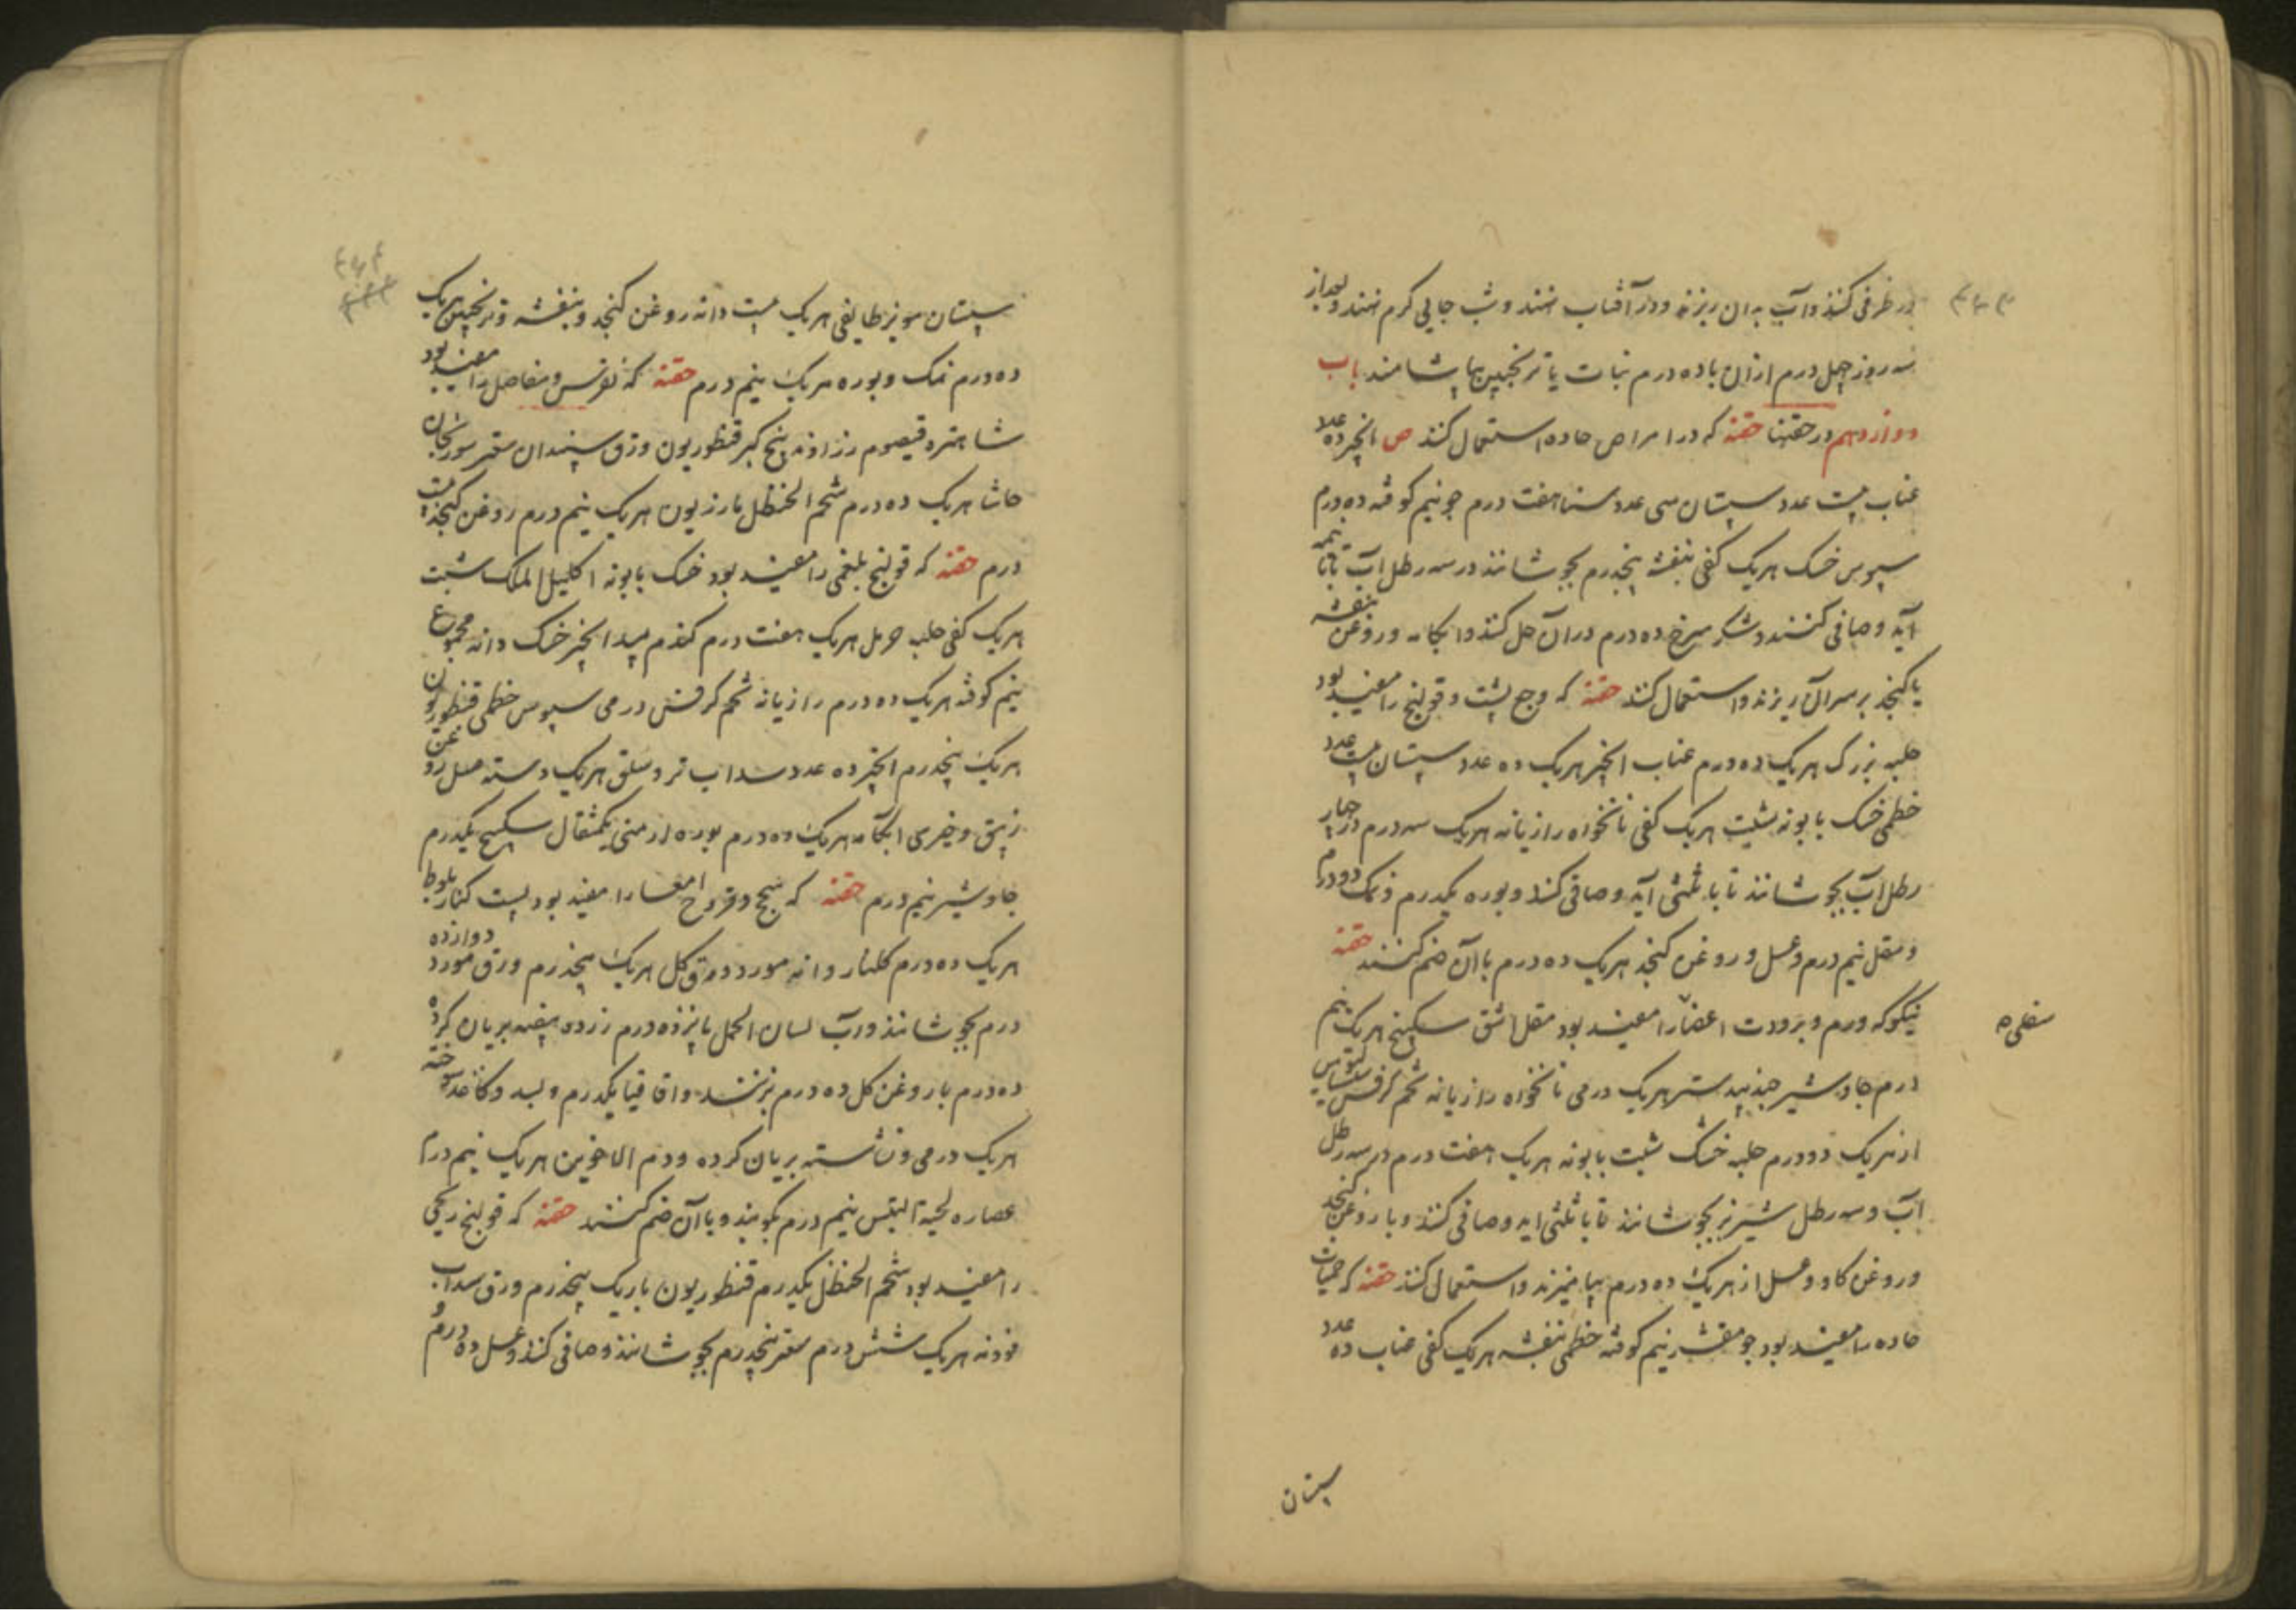 در ظرفی کنند و آب به ان ریزند و در آفتاب نهند و شب جایی گرم نهند و بعد از
سه روز چهل درم ازان با ده درم نبات یا ترنجبین بیاشامند باب
دوازدهم در حقنها حقنه که در امراض حاده استعمال کنند ص انجیر ده عدد
عناب بیست عدد سپستان سی عدد سنا هفت درم جو نیم کوفته ده درم
سپوس خسک هریک کفی بنفشه پنجدرم بجوشانند در سه رطل آب تا با نیمه
آید و صافی کنند و شکر سرخ ده درم دران حل کنند و ابکامه و روغن بنفشه
یا کنجد بر سرآن ریزند و استعمال کنند حقنه که وجع پشت و قولنج را مفید بود
حلبه بزرک هریک ده درم عناب انجیر هریک ده عدد سپستان بیست عدد
خطمی خسک بابونه شبت هریک کفی نانخواه رازیانه هریک سه درم در چهار
رطل آب بجوشانند تا با ثلثی آید و صافی کنند و بوره یکدرم و نمک دو درم
و مقل نیم درم و عسل و روغن کنجد هریک ده درم با آن ضم کنند حقنه
نیکو که ورم و برودت اعضا را مفید بود مقل اشق سکبینج هریک نیم
درم جاوشیر جندبیدستر هریک درمی نانخواه رازیانه تخم کرفس
از هریک دو درم حلبه خسک شبت بابونه هریک هفت درم در سه رطل
آب و سه رطل شیر بز بجوشانند تا با ثلثی اید و صافی کنند و با روغن کنجد
و روغن کاو و عسل از هریک ده درم بیامیزند و استعمال کنند حقنه که حمیات
حاده را مفید بود جو مقشر نیم کوفته خطمی بنفشه هریک کفی عناب ده عدد
سپستان
سپستان مویز طایفی هریک بیست دانه روغن کنجد و بنفشه و ترنجبین هریک
ده درم نمک و بوره هریک نیم درم حقنه که نقرس و مفاصل را مفید بود
شاهتره قیصوم رزاوند بیخ کبر قنطوریون ورق سپندان سعتر سورنجان
حاشا هریک ده درم شحم الحنظل مازریون هریک نیم درم روغن کنجد بیست
درم حقنه که قولنج بلغمی را مفید بود خسک بابونه اکلیل الملک شبت
هریک کفی حلبه حرمل هریک هفت درم کندم بیدانجیر خسک دانه مجموع
نیم کوفته هریک ده درم رازیانه تخم کرفس درمی سپوس خطمی قنطوریون
هریک پنجدرم انجیر ده عدد سداب تر و سلق هریک دسته عسل روغن
زنبق و خیری ابکامه هریک ده درم بوره ارمنی یکمثقال سکبینج یکدرم
جاوشیر نیم درم حقنه که سحج و قروح امعا را مفید بود پست کنار بلوط
هریک ده درم کلنار دانه مورد ورق کل هریک پنجدرم ورق مورد دوازده
درم بجوشانند در آب لسان الحمل پانزده درم زرده بیضه بریان کرده
ده درم با روغن کل ده درم بزنند و اقاقیا یکدرم و بسد و کاغذ سوخته
هریک درمی و نشاسته بریان کرده و دم الاخوین هریک نیم درم
عصاره لحیة التیس نیم درم بکوبند و با آن ضم کنند حقنه که قولنج ریحی
را مفید بود شحم الحنظل یکدرم قنطوریون باریک پنجدرم ورق سداب
فودنه هریک شش درم سعتر پنجدرم بجوشانند و صافی کنند و عسل ده درم و